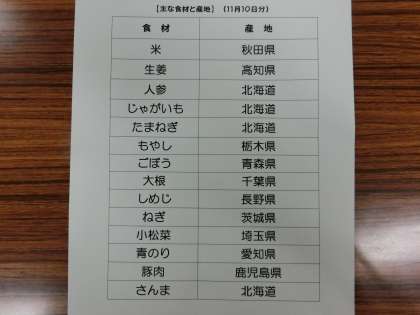 【主な食材と産地】 （11月10日分）
食 材 産 地
米 秋田県
生姜 高知県
人参 北海道
じゃがいも 北海道
たまねぎ 北海道
もやし 栃木県
ごぼう 青森県
大根 千葉県
しめじ 長野県
ねぎ 茨城県
小松菜 埼玉県
青のり 愛知県
豚肉 鹿児島県
さんま 北海道